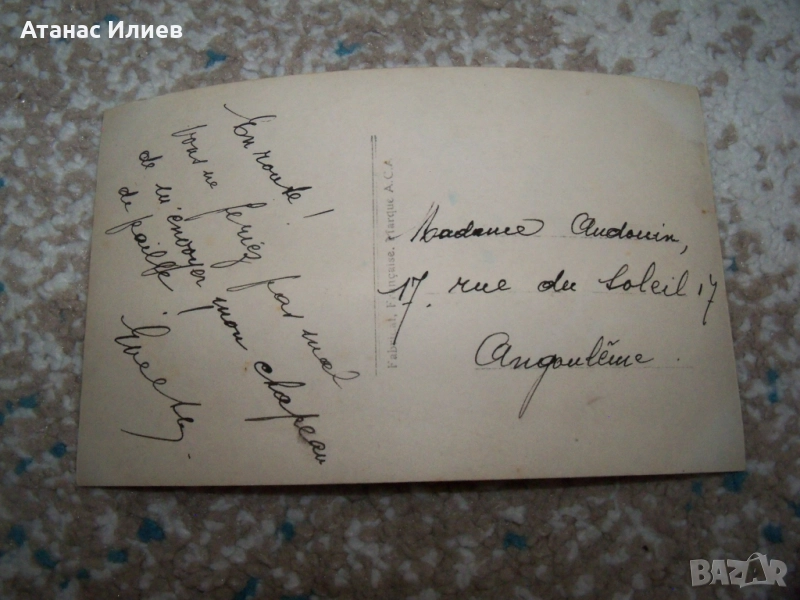 Атанас Илиев
En route!
Vous ne feriez pas mal
de m'envoyer mon chapeau
de paille.
Fabricat. Française. Marque A.C.A
Madame Audouin,
17. rue du Soleil 17
Angoulême.
BAZAR